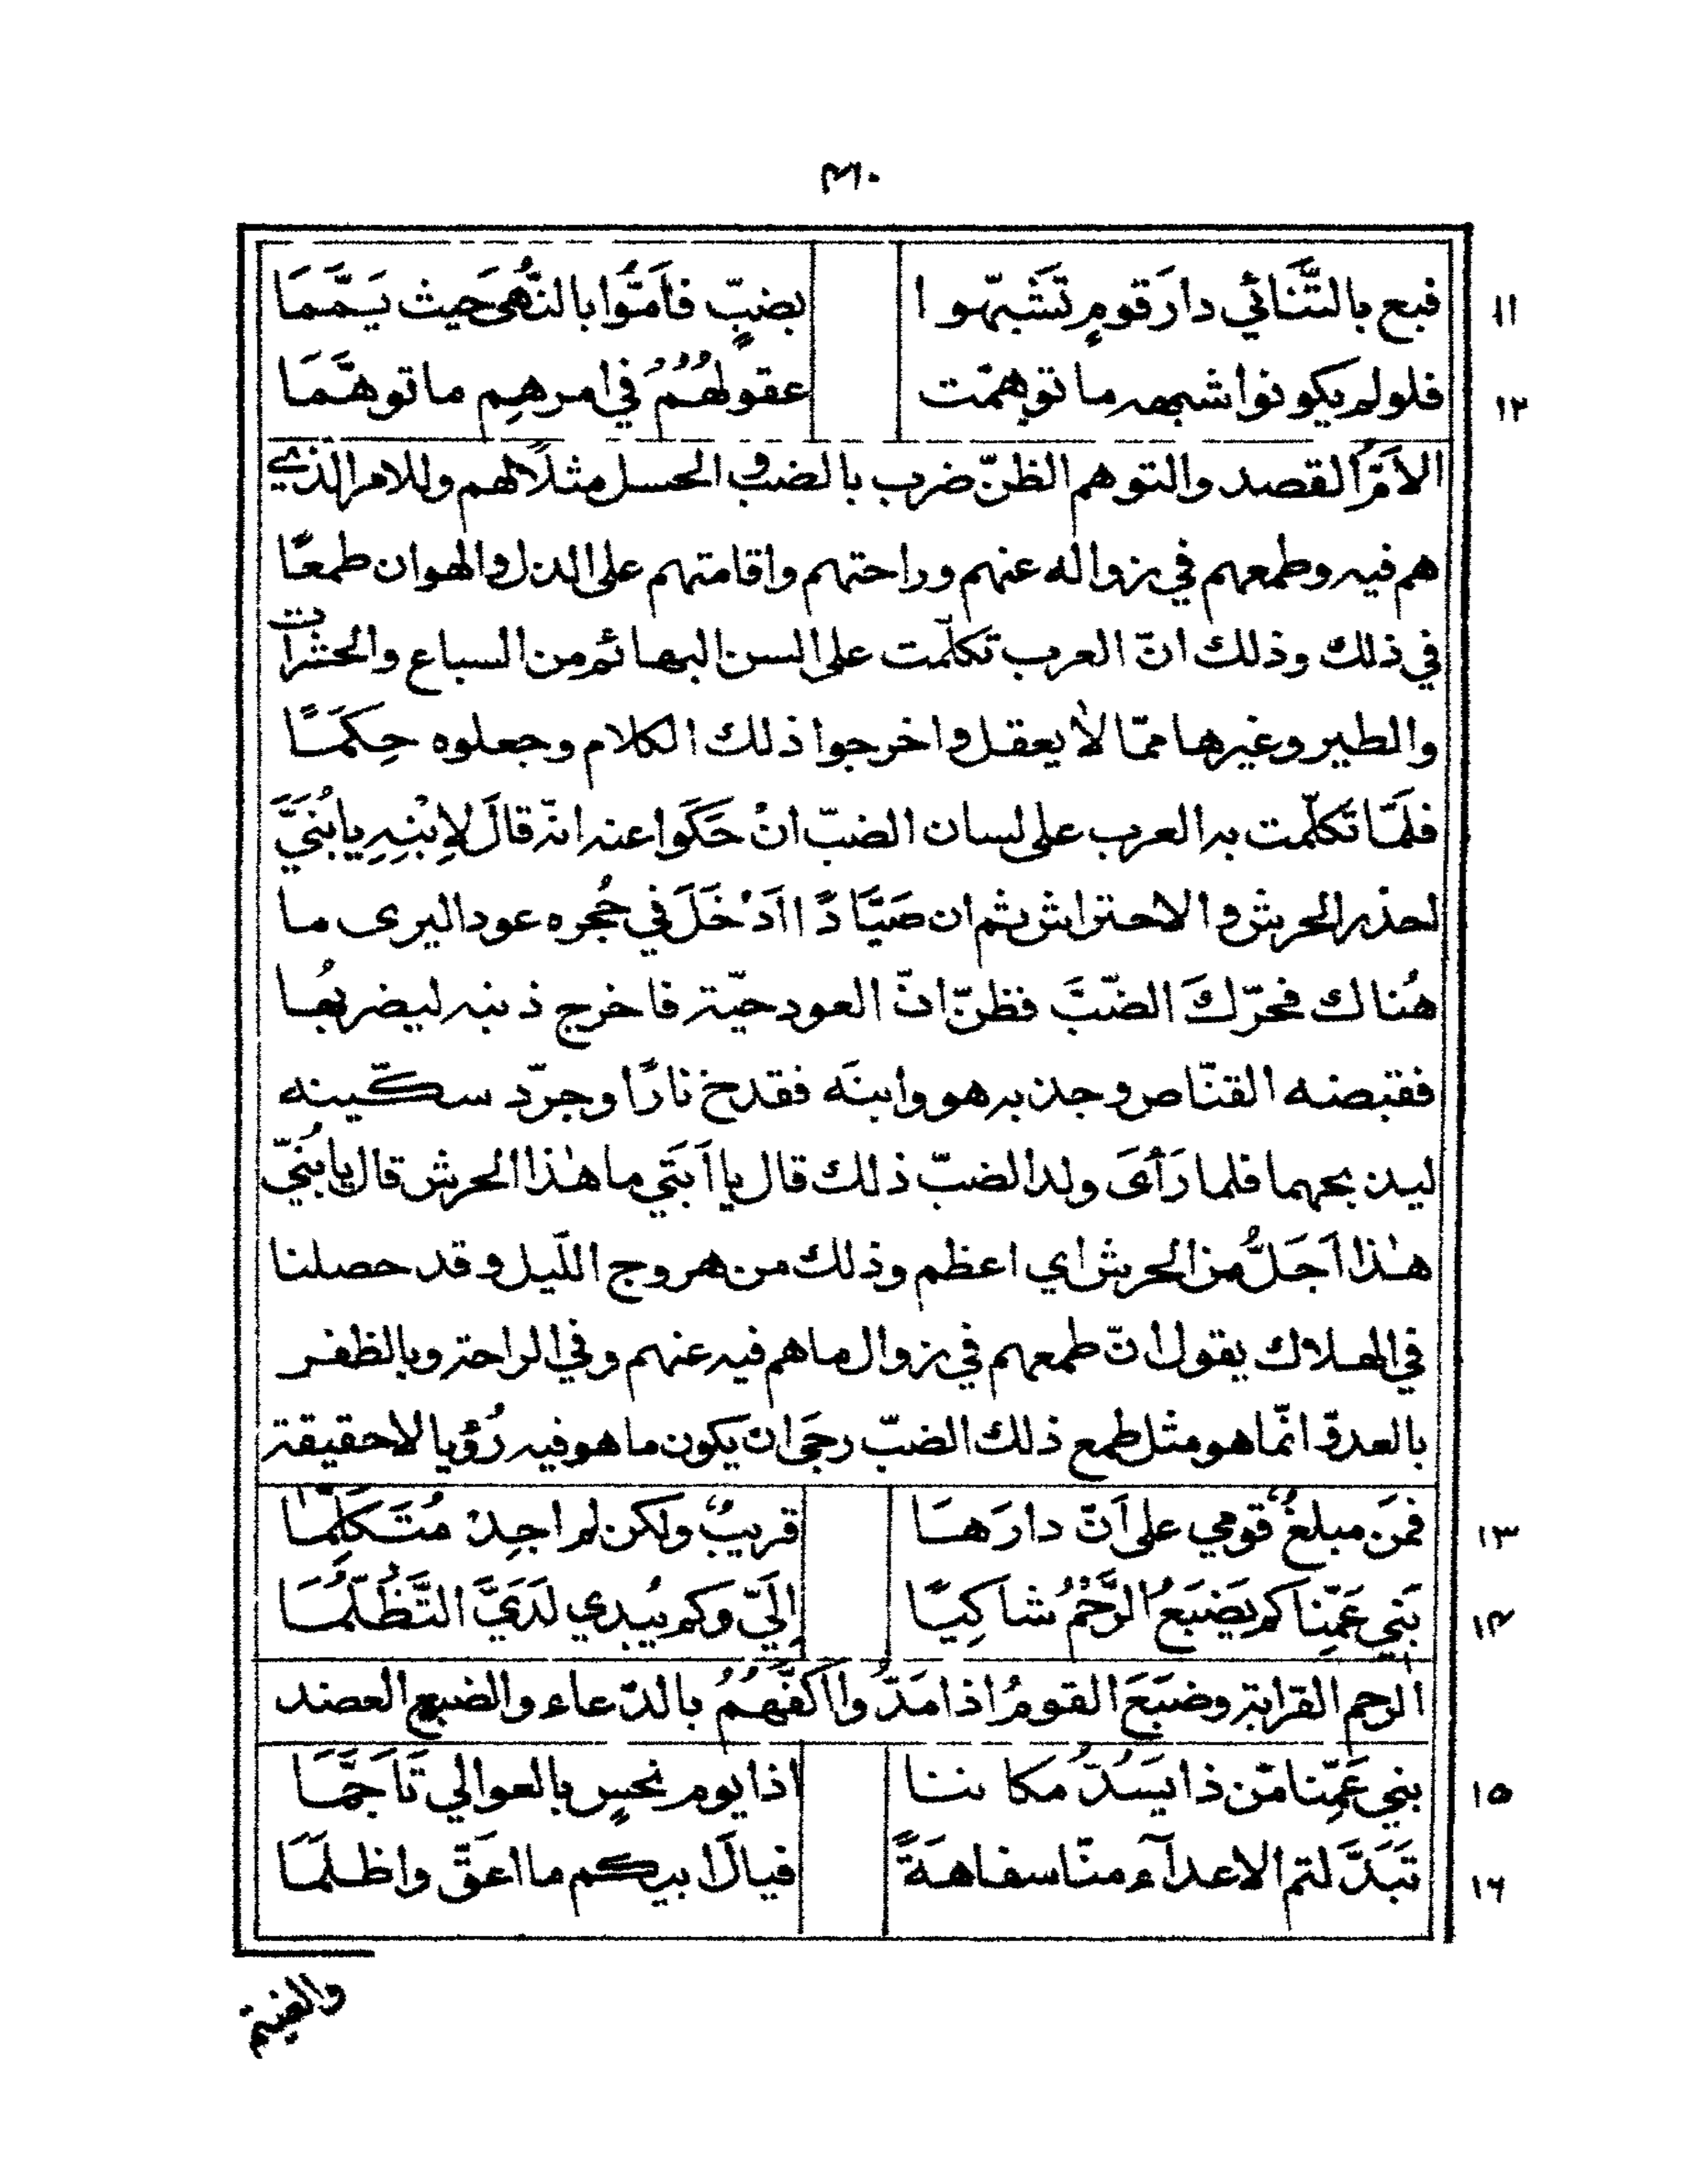 ٣٦٠
١١ فبع بالتَّنَائي دارَ قومٍ تَشَبّهوا بضبٍّ فأَمُّوا بالنُّهى حَيث يَـمَّـمَا
١٢ فلو لم يكونوا اشبهه ما توهّمت عقولهُمُ في امرهِم ما توهَّمَا
الأَمُّ القصد والتوهم الظنّ ضرب بالضب والحسل مثلاً لهم وللامر الذي
هم فيه وطمعهم في زواله عنهم وراحتهم واقامتهم على الذل والهوان طمعًا
في ذلك وذلك انّ العرب تكلّمت على السن البهائم من السباع والحشرات
والطير وغيرها ممّا لا يعقل واخرجوا ذلك الكلام وجعلوه حِكَمًا
فلَمَّا تكلّمت به العرب على لسان الضبّ انْ حَكَوا عنه انّه قالَ لإبْنِهِ يا بُنَيَّ
احذر الحرش والاحتراش ثم ان صَيَّادًا اَدْخَلَ في جُحره عودا ليرى ما
هُناك فحرّكَ الضّبَّ فظنّ انّ العود حيّة فاخرج ذنبه ليضربُها
فقبضه القنّاص وجذبه هو وابنَه فقدح نارًا وجرّد سكّينه
ليذبحهما فلما رَأَىَ ولد الضبّ ذلك قال يا اَبَتي ما هٰذا الحرش قال يا بُنَيّ
هٰذا اَجَلُّ من الحرش اي اعظم وذلك من هروج اللّيل وقد حصلنا
في الهلاك يقول انّ طمعهم في زوال ما هم فيه عنهم وفي الراحة وبالظفر
بالعدوّ انّما هو مثل طمع ذلك الضبّ رجَىَ ان يكون ما هو فيه رُؤيا لا حقيقة
١٣ فمَن مبلغٌ قومي على اَنّ دارَهَا قريبٌ ولكن لم اجِدْ مُتَكَلَّمَا
١٤ بَني عَمِّنا كم يَضبَعُ الرَّحْمُ شاكِيًا إِليّ وكم يُبدي لَدَيَّ التَّظَلُّمَا
الرحم القرابة وضبَعَ القومُ اذا مَدُّوا اَكُفَّهُمُ بالدّعاء والضبع العضد
١٥ بني عَمِّنا مَن ذا يَسُدُّ مكاننا اذا يوم نحسٍ بالعوالي تَاَجَّمَا
١٦ تَبَدَّلتم الاعدآء منّا سفاهَةً فيا لَا بيكم ما اعَقَّ واظلَمَا